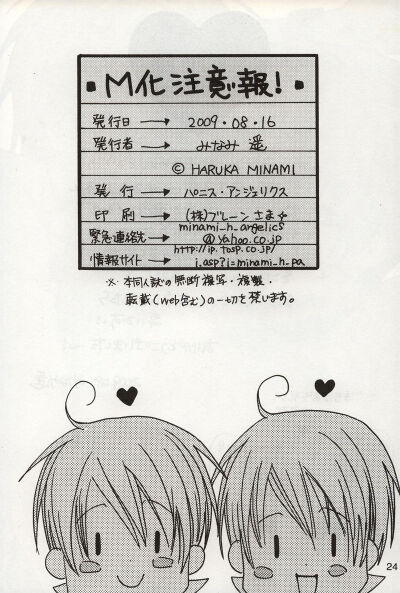 ■M化注意報!■
発行日 → 2009・08・16
発行者 → みなみ 遥
© HARUKA MINAMI
発行 → パニス・アンジェリクス
印刷 → (株)ブレーンさま☆
緊急連絡先 → minami_h_angelics
@yahoo.co.jp
情報サイト → http://ip.tosp.co.jp/
i.asp?i=minami_h_pa
※ 本同人誌の無断複写・複製・
転載(web含む)の一切を禁じます。
24